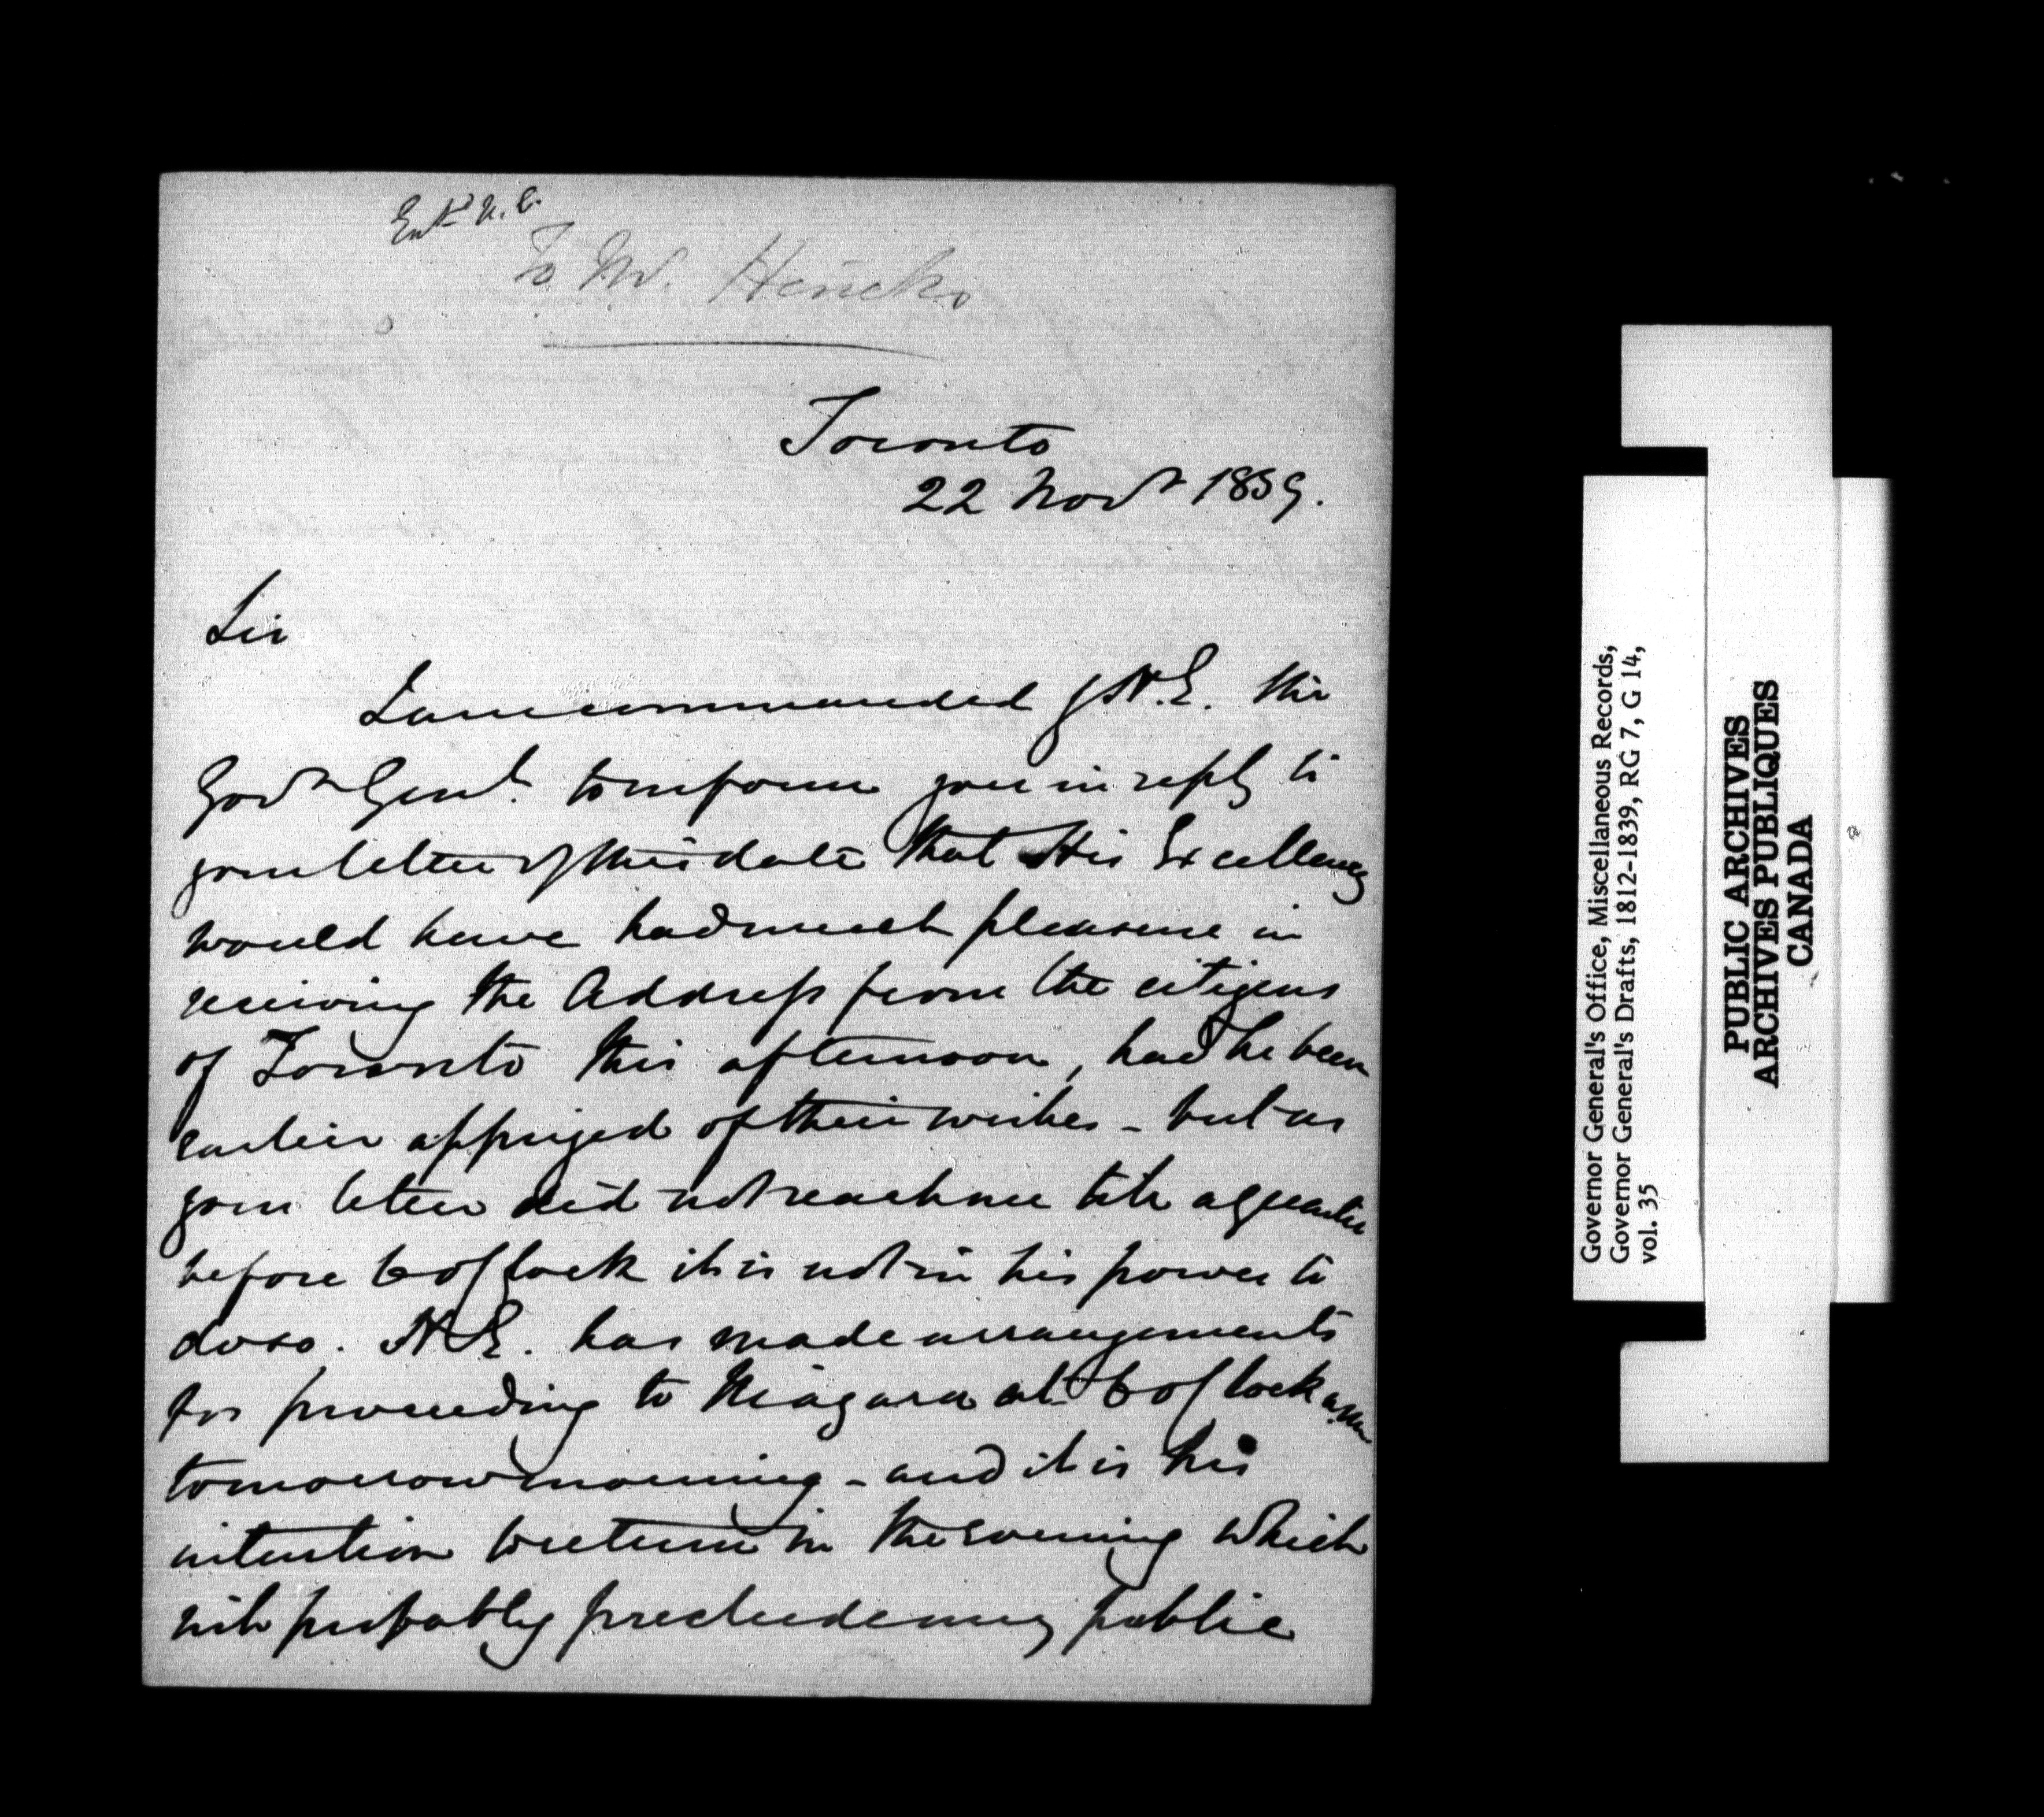 Entd U.C.
To Mr. Hincks
Toronto
22 Novr 1839.
Sir
I am commanded by H.E. the
Govr Genl. to inform you in reply to
your letter of this date that His Excellency
would have had much pleasure in
receiving the Address from the citizens
of Toronto this afternoon, had he been
earlier apprized of their wishes - but as
your letter did not reach me till a quarter
before 6 o'clock it is not in his power to
do so. H.E. has made arrangements
for proceeding to Niagara at 6 o'clock a.m.
tomorrow morning - and it is his
intention to return in the evening which
will probably preclude any public
Governor General's Office, Miscellaneous Records,
Governor General's Drafts, 1812-1839, RG 7, G 14,
vol. 35
PUBLIC ARCHIVES
ARCHIVES PUBLIQUES
CANADA